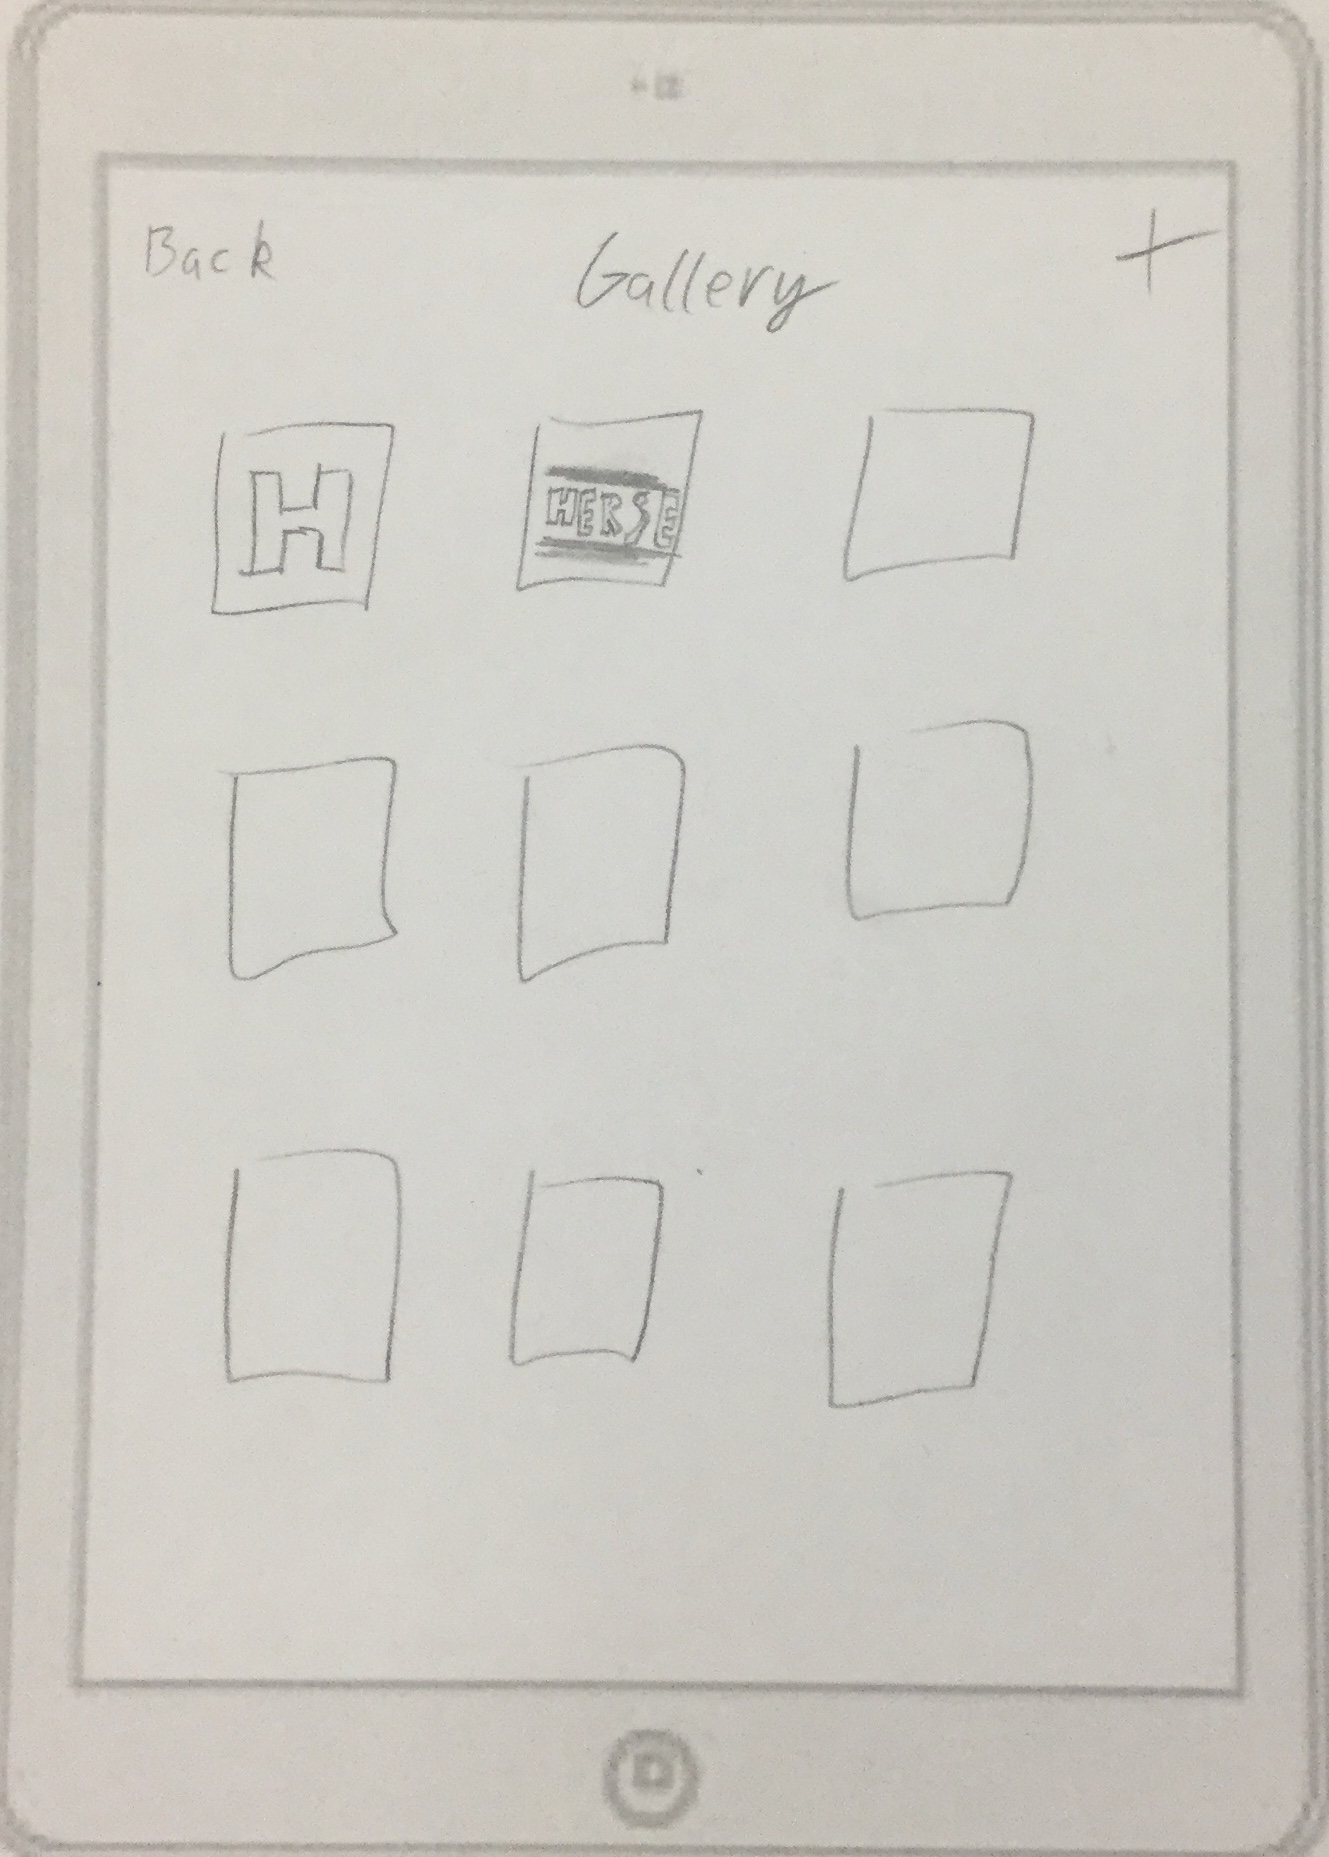 Back Gallery +
H HERSE